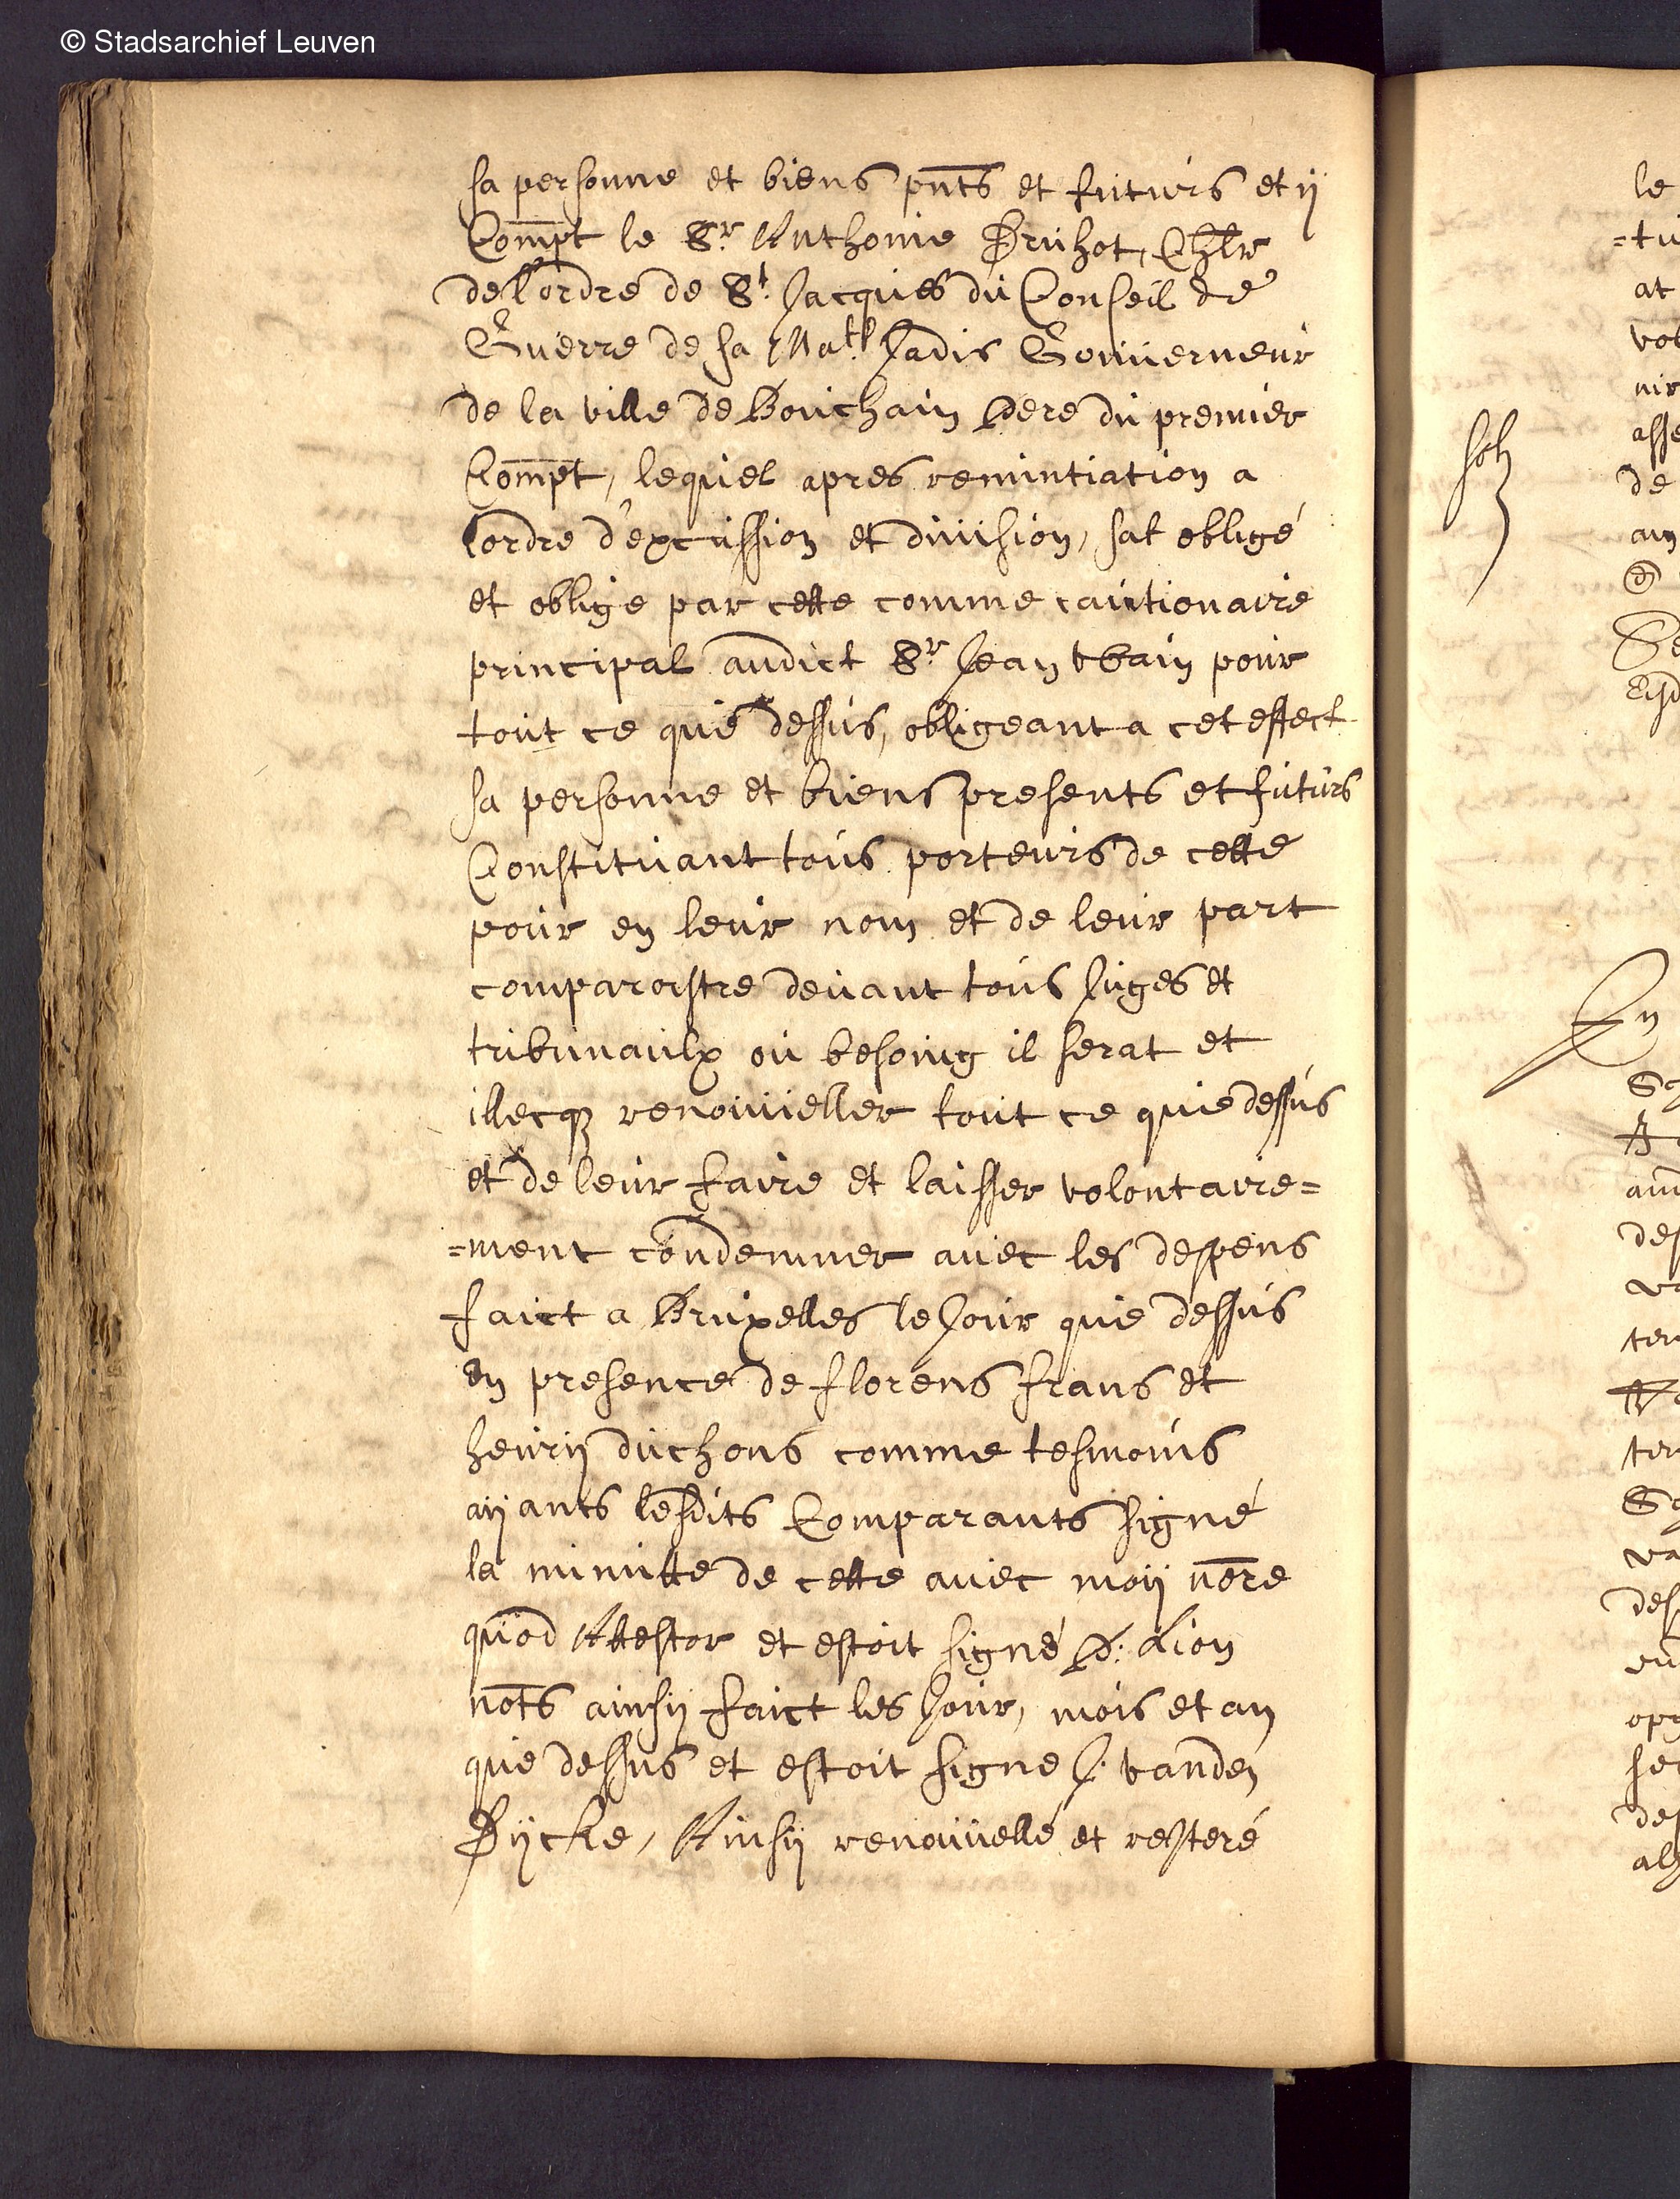 © Stadsarchief Leuven
sa personne et biens pnts et futurs et ij
Compt le Sr. Anthonie Bruhot, Chlr
de l'ordre de St. Jacques du Conseil de
Guerre de sa Matl Jadis Gouuerneur
de la ville de Bouchain Pere du premier
Compt, lequel apres renuntiation a
lordre d'excussion et diuision, sat obligé
et oblige par cette comme cautionaire
principal audict Sr. Jean tbain pour
tout ce que dessus, obligeant a cet effect
sa personne et biens presents et futurs
Constituant tous porteurs de cette
pour en leur nom et de leur part
comparoistre deuant tous Juges et
tribunaulx ou besoing il serat et
illecq renouueller tout ce que dessus
et de leur faire et laisser volontaire=
=ment condemner auec les despens
faict a Bruxelles le Jour que dessus
en presence de florens frans et
henrij duchons comme tesmoins
aijants lesdits Comparants signé
la minutte de cette auec moij nore
quod Attestor et estoit signé P: Lion
nots ainsij faict les Jour, mois et an
que dessus et estoit signe J: vanden
Dijcke, Ainsij renouuellé et reiteré
le
=tu
at
vot
nir
asse
de
am
soh
En
des
ter
ter
des
opr
ser
des